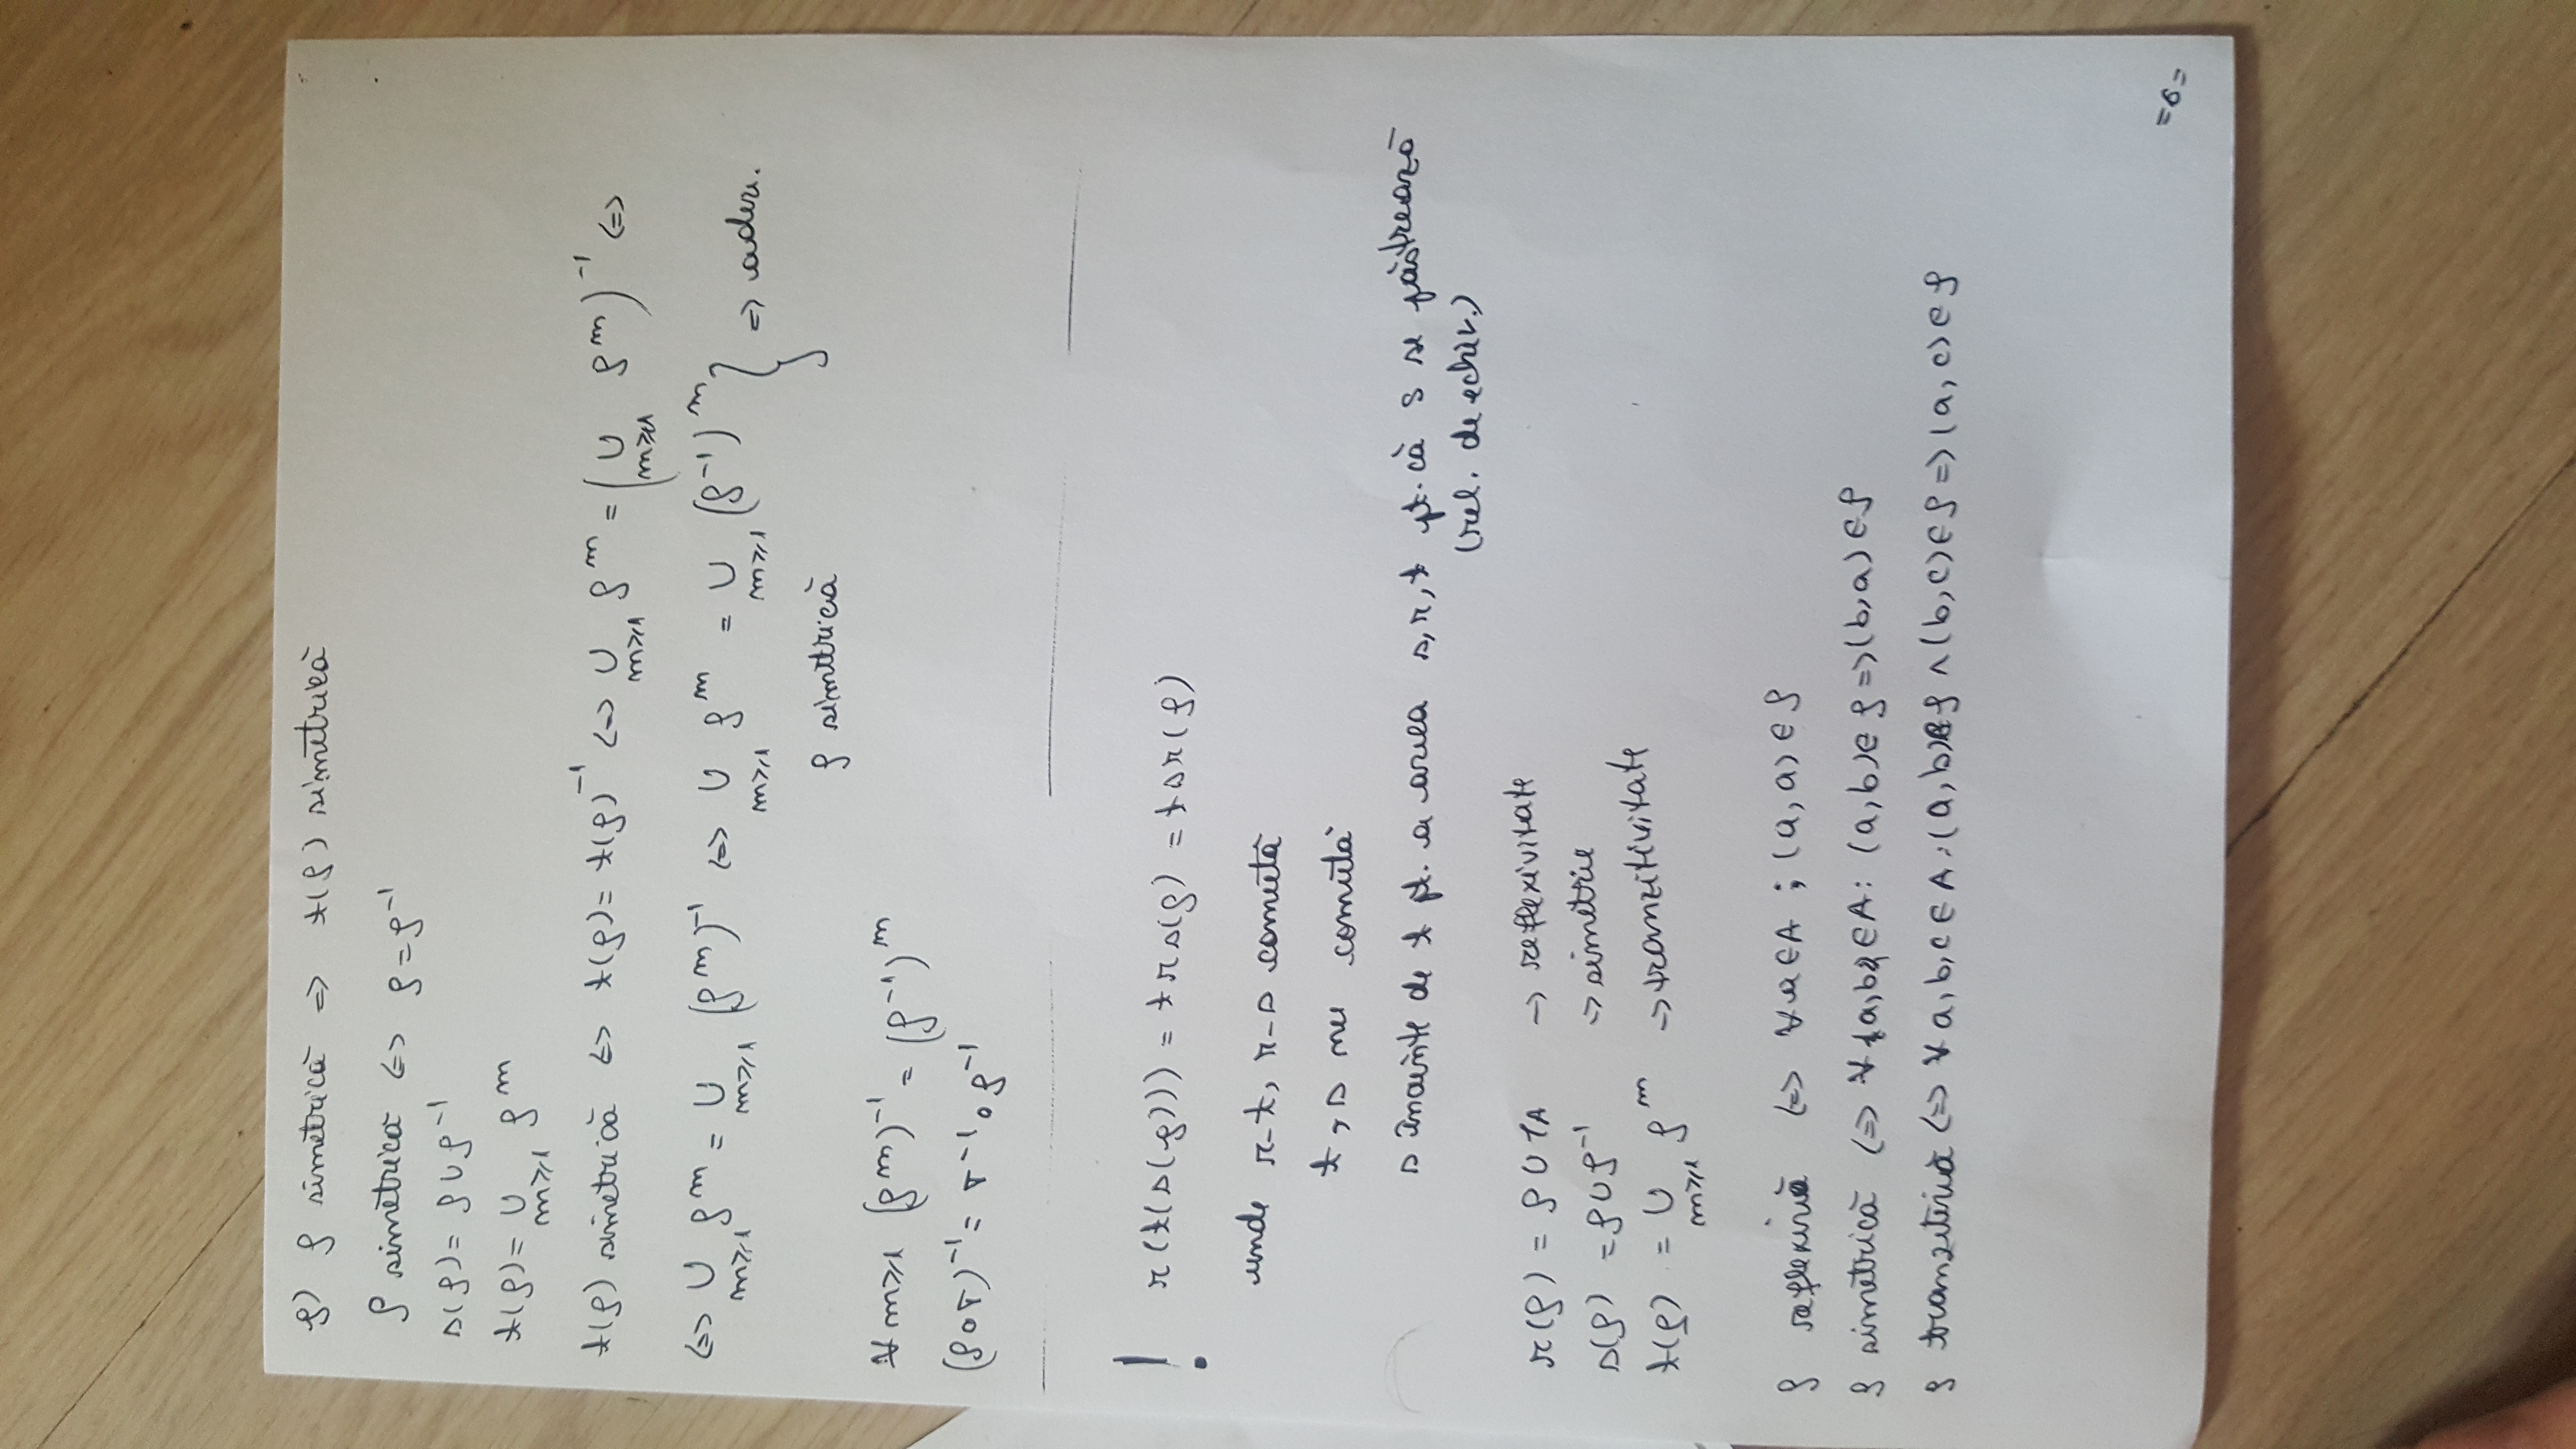 f) ρ simetrică => t(ρ) simetrică
ρ simetrică <=> ρ = ρ⁻¹
s(ρ) = ρ ∪ ρ⁻¹
t(ρ) = ∪_{m≥1} ρ^m
t(ρ) simetrică <=> t(ρ) = t(ρ)⁻¹ <=> ∪_{m≥1} ρ^m = (∪_{m≥1} ρ^m)⁻¹ <=>
<=> ∪_{m≥1} ρ^m = ∪_{m≥1} (ρ^m)⁻¹ <=> ∪_{m≥1} ρ^m = ∪_{m≥1} (ρ⁻¹)^m } => adev.
ρ simetrică
∀ m≥1 (ρ^m)⁻¹ = (ρ⁻¹)^m
(ρ∘σ)⁻¹ = σ⁻¹∘ρ⁻¹
! r(t(s(ρ))) = trs(ρ) = tsr(ρ)
unde r-t, r-s comută
t, s nu comută
s înainte de t pt. a avea s, r, t pt. că s se păstrează
(rel. de echiv.)
r(ρ) = ρ ∪ 1A -> reflexivitate
s(ρ) = ρ ∪ ρ⁻¹ -> simetrie
t(ρ) = ∪_{m≥1} ρ^m -> tranzitivitate
ρ reflexivă <=> ∀ a ∈ A ; (a, a) ∈ ρ
ρ simetrică <=> ∀ a, b ∈ A : (a, b) ∈ ρ => (b, a) ∈ ρ
ρ tranzitivă <=> ∀ a, b, c ∈ A : (a, b) ∈ ρ ∧ (b, c) ∈ ρ => (a, c) ∈ ρ
=6=